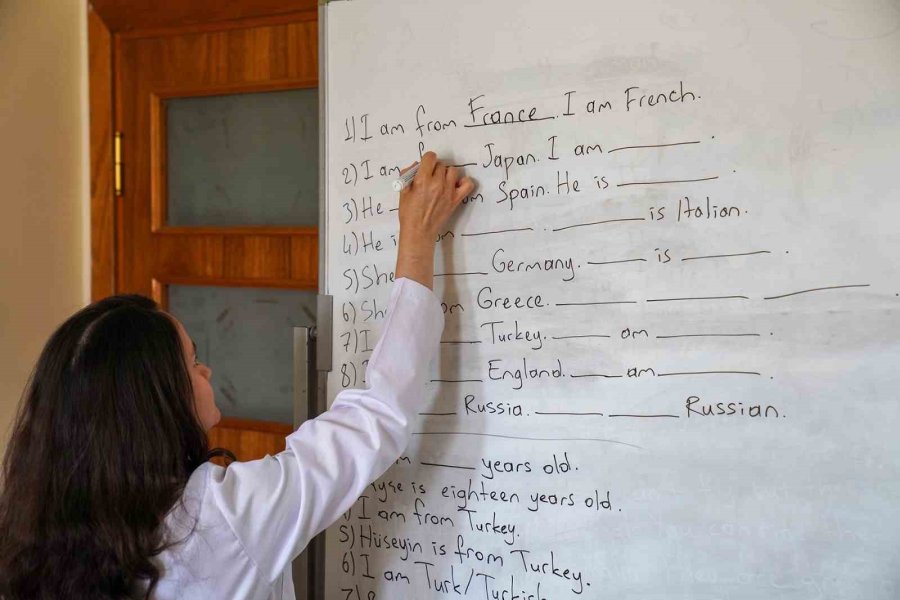 1) I am from France. I am French.
2) I am ____ Japan. I am ____.
3) He ____ Spain. He is ____.
4) He ____. ____ is Italian.
5) She ____ Germany. ____ is ____.
6) ____ Greece. ____ ____ ____.
7) I ____ Turkey. ____ am ____.
8) ____ England. ____ am ____.
____ Russia. ____ ____ Russian.
____ years old.
is eighteen years old.
I am from Turkey.
5) Hüseyin is from Turkey.
6) I am Turk/Turkish